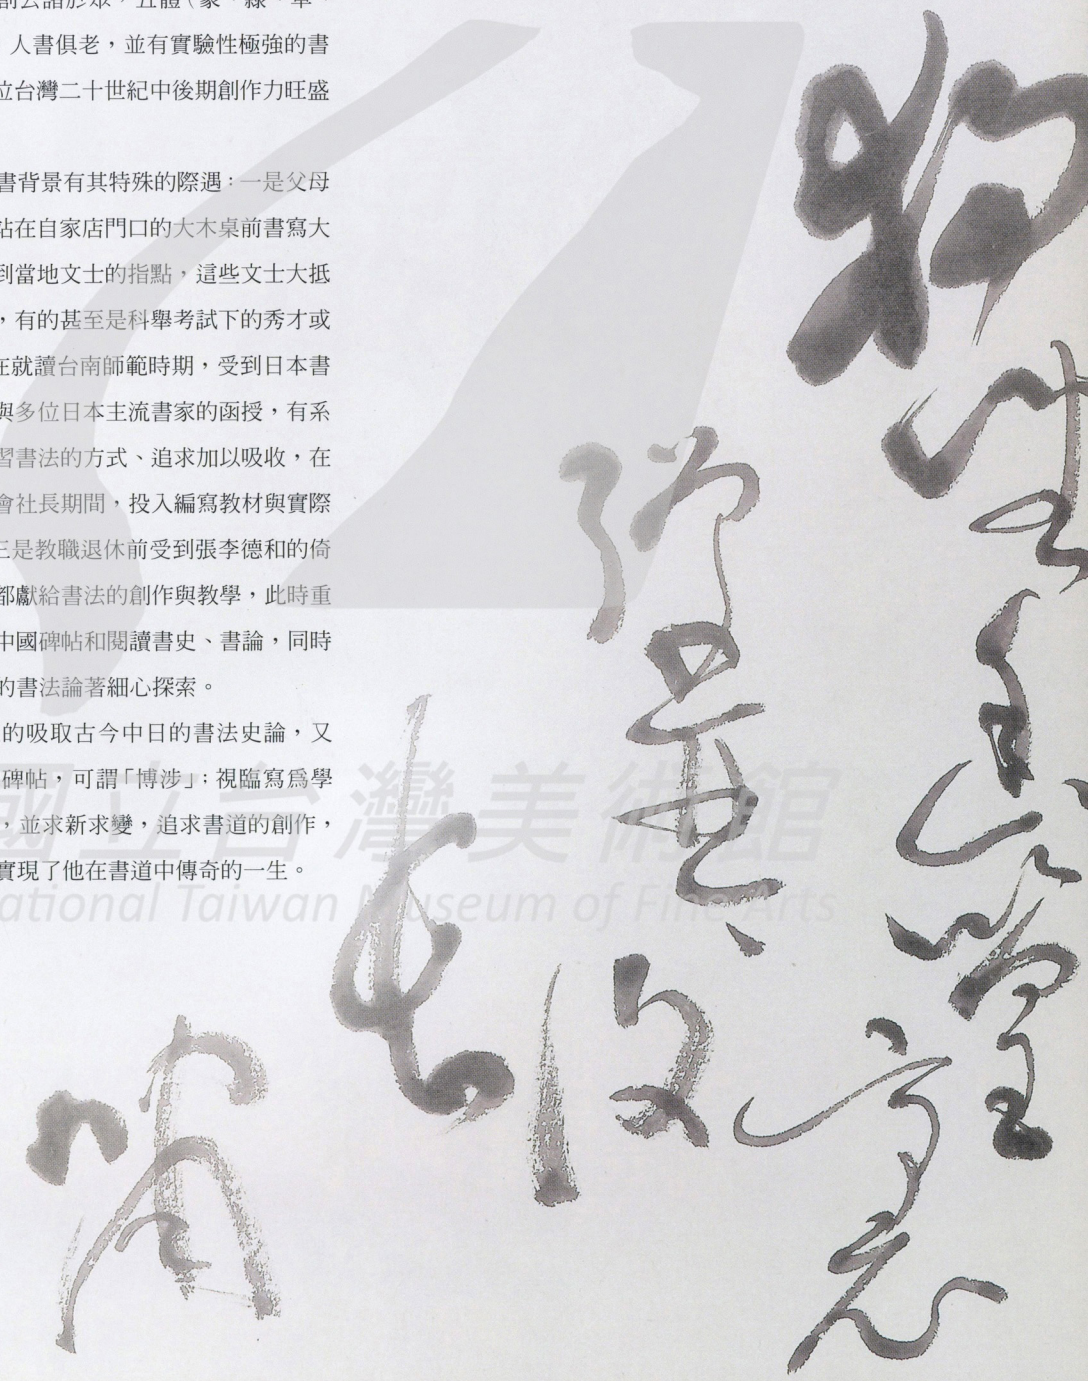 五體（篆、隸、草、
人書俱老，並有實驗性極強的書
位台灣二十世紀中後期創作力旺盛
書背景有其特殊的際遇：一是父母
站在自家店門口的大木桌前書寫大
到當地文士的指點，這些文士大抵
，有的甚至是科舉考試下的秀才或
在就讀台南師範時期，受到日本書
與多位日本主流書家的函授，有系
習書法的方式、追求加以吸收，在
會社長期間，投入編寫教材與實際
三是教職退休前受到張李德和的倚
都獻給書法的創作與教學，此時重
中國碑帖和閱讀書史、書論，同時
的書法論著細心探索。
的吸取古今中日的書法史論，又
碑帖，可謂「博涉」；視臨寫為學
，並求新求變，追求書道的創作，
實現了他在書道中傳奇的一生。
國立台灣美術館
ational Taiwan Museum of Fine Arts
獨坐幽篁
裏
彈琴
復
長
嘯